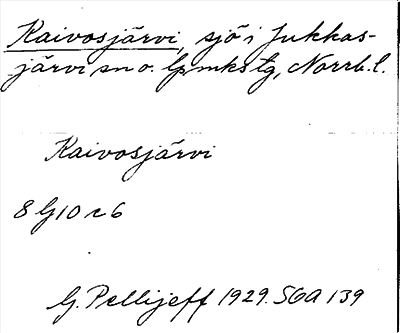 Kaivosjärvi, sjö i Jukkas-
järvi sn o. lpmkstg, Norrb. l.
Kaivosjärvi
8 G 10 r 6
G. Pellijeff 1929. SOA 139